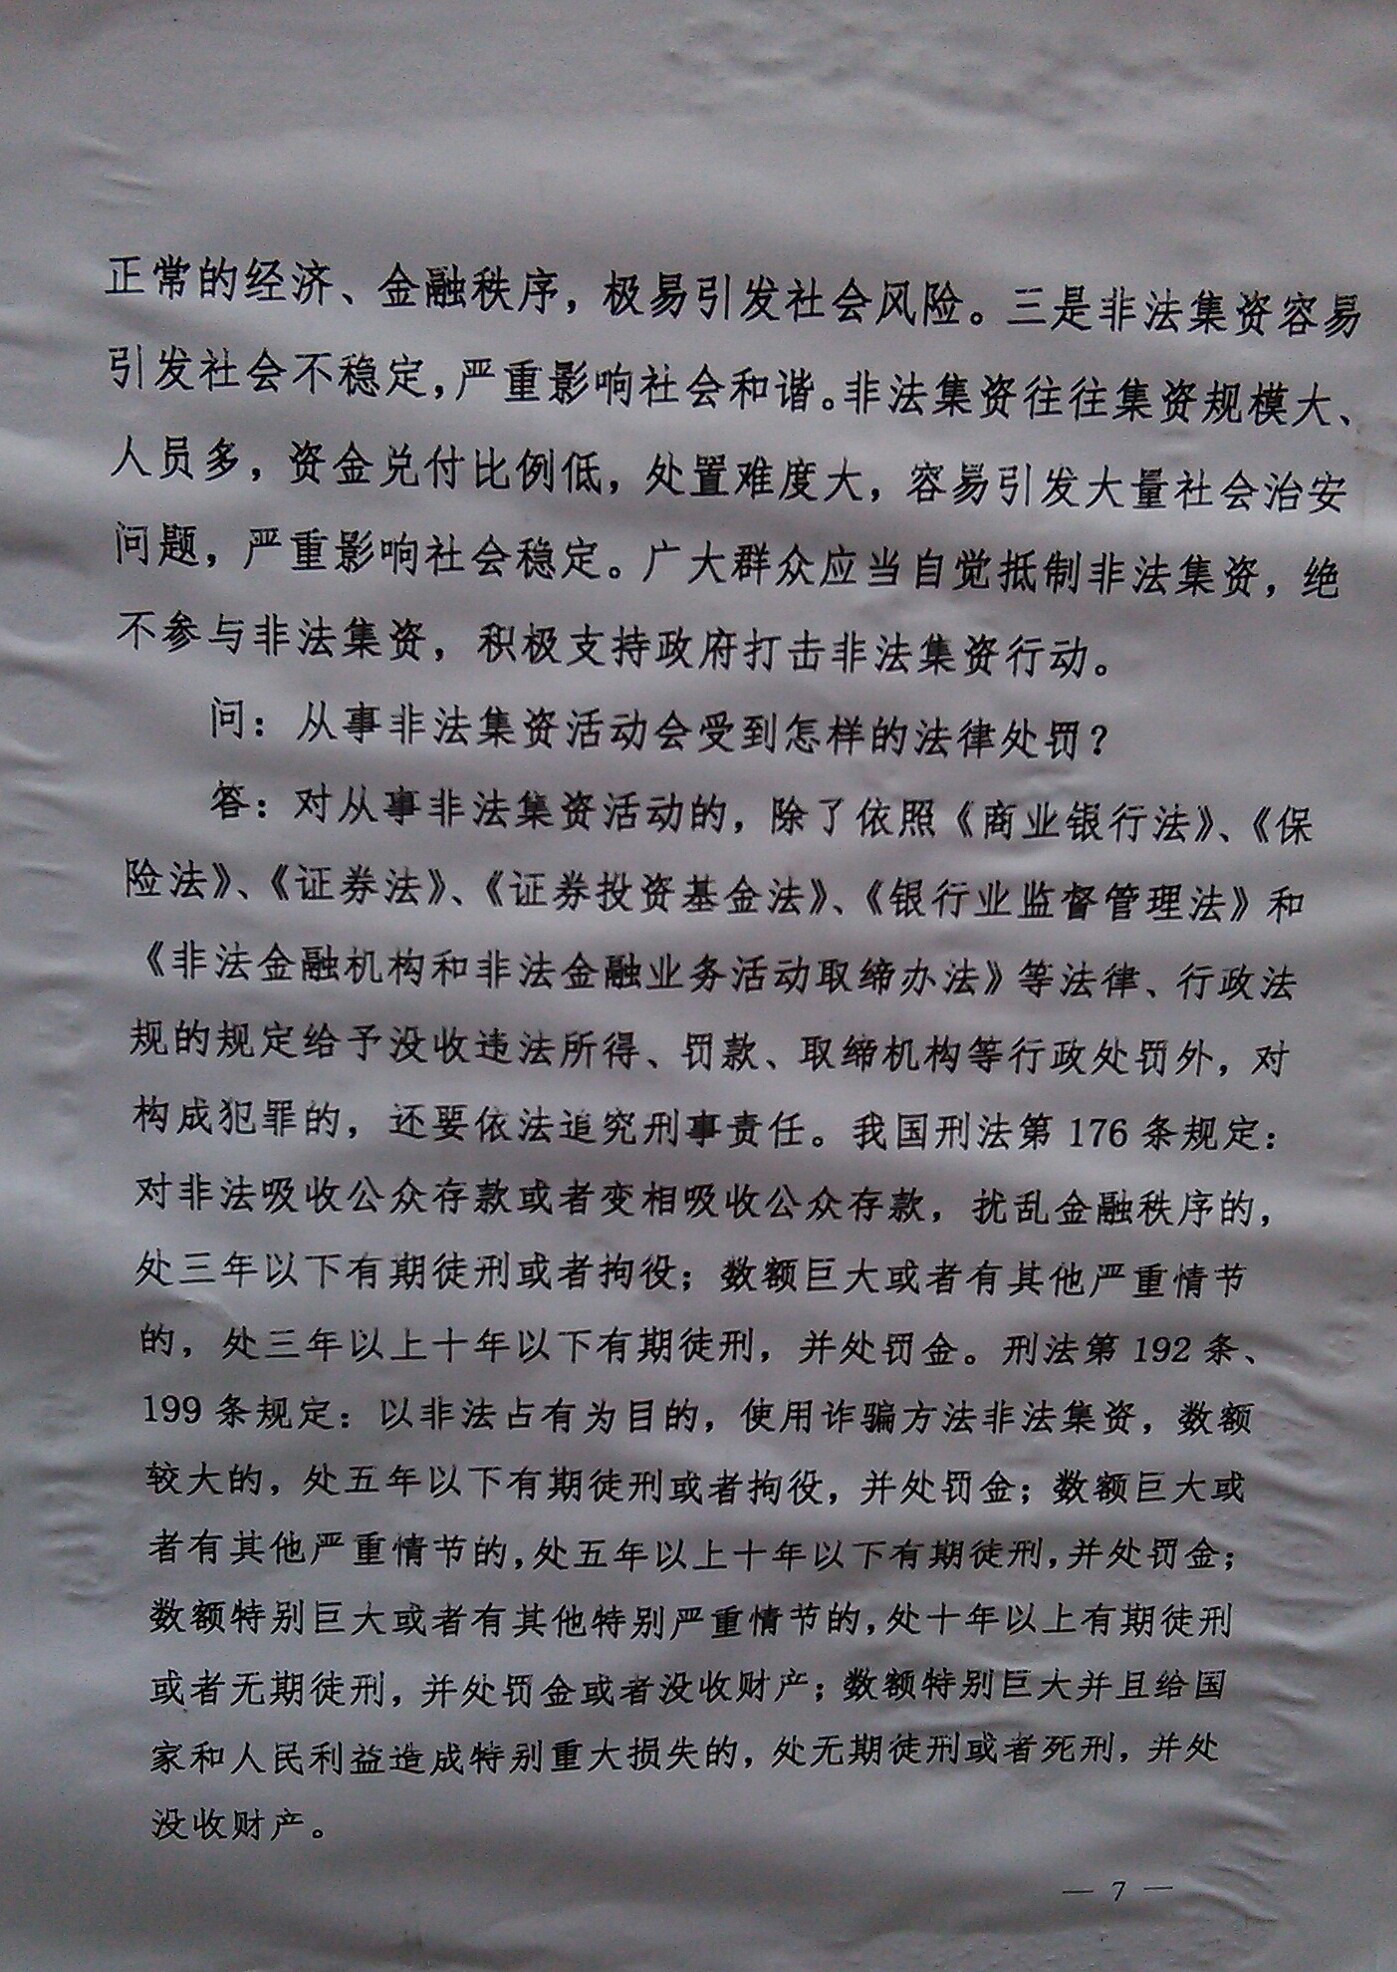 正常的经济、金融秩序，极易引发社会风险。三是非法集资容易
引发社会不稳定，严重影响社会和谐。非法集资往往集资规模大、
人员多，资金兑付比例低，处置难度大，容易引发大量社会治安
问题，严重影响社会稳定。广大群众应当自觉抵制非法集资，绝
不参与非法集资，积极支持政府打击非法集资行动。
问：从事非法集资活动会受到怎样的法律处罚？
答：对从事非法集资活动的，除了依照《商业银行法》、《保
险法》、《证券法》、《证券投资基金法》、《银行业监督管理法》和
《非法金融机构和非法金融业务活动取缔办法》等法律、行政法
规的规定给予没收违法所得、罚款、取缔机构等行政处罚外，对
构成犯罪的，还要依法追究刑事责任。我国刑法第 176 条规定：
对非法吸收公众存款或者变相吸收公众存款，扰乱金融秩序的，
处三年以下有期徒刑或者拘役；数额巨大或者有其他严重情节
的，处三年以上十年以下有期徒刑，并处罚金。刑法第 192 条、
199 条规定：以非法占有为目的，使用诈骗方法非法集资，数额
较大的，处五年以下有期徒刑或者拘役，并处罚金；数额巨大或
者有其他严重情节的，处五年以上十年以下有期徒刑，并处罚金；
数额特别巨大或者有其他特别严重情节的，处十年以上有期徒刑
或者无期徒刑，并处罚金或者没收财产；数额特别巨大并且给国
家和人民利益造成特别重大损失的，处无期徒刑或者死刑，并处
没收财产。
— 7 —